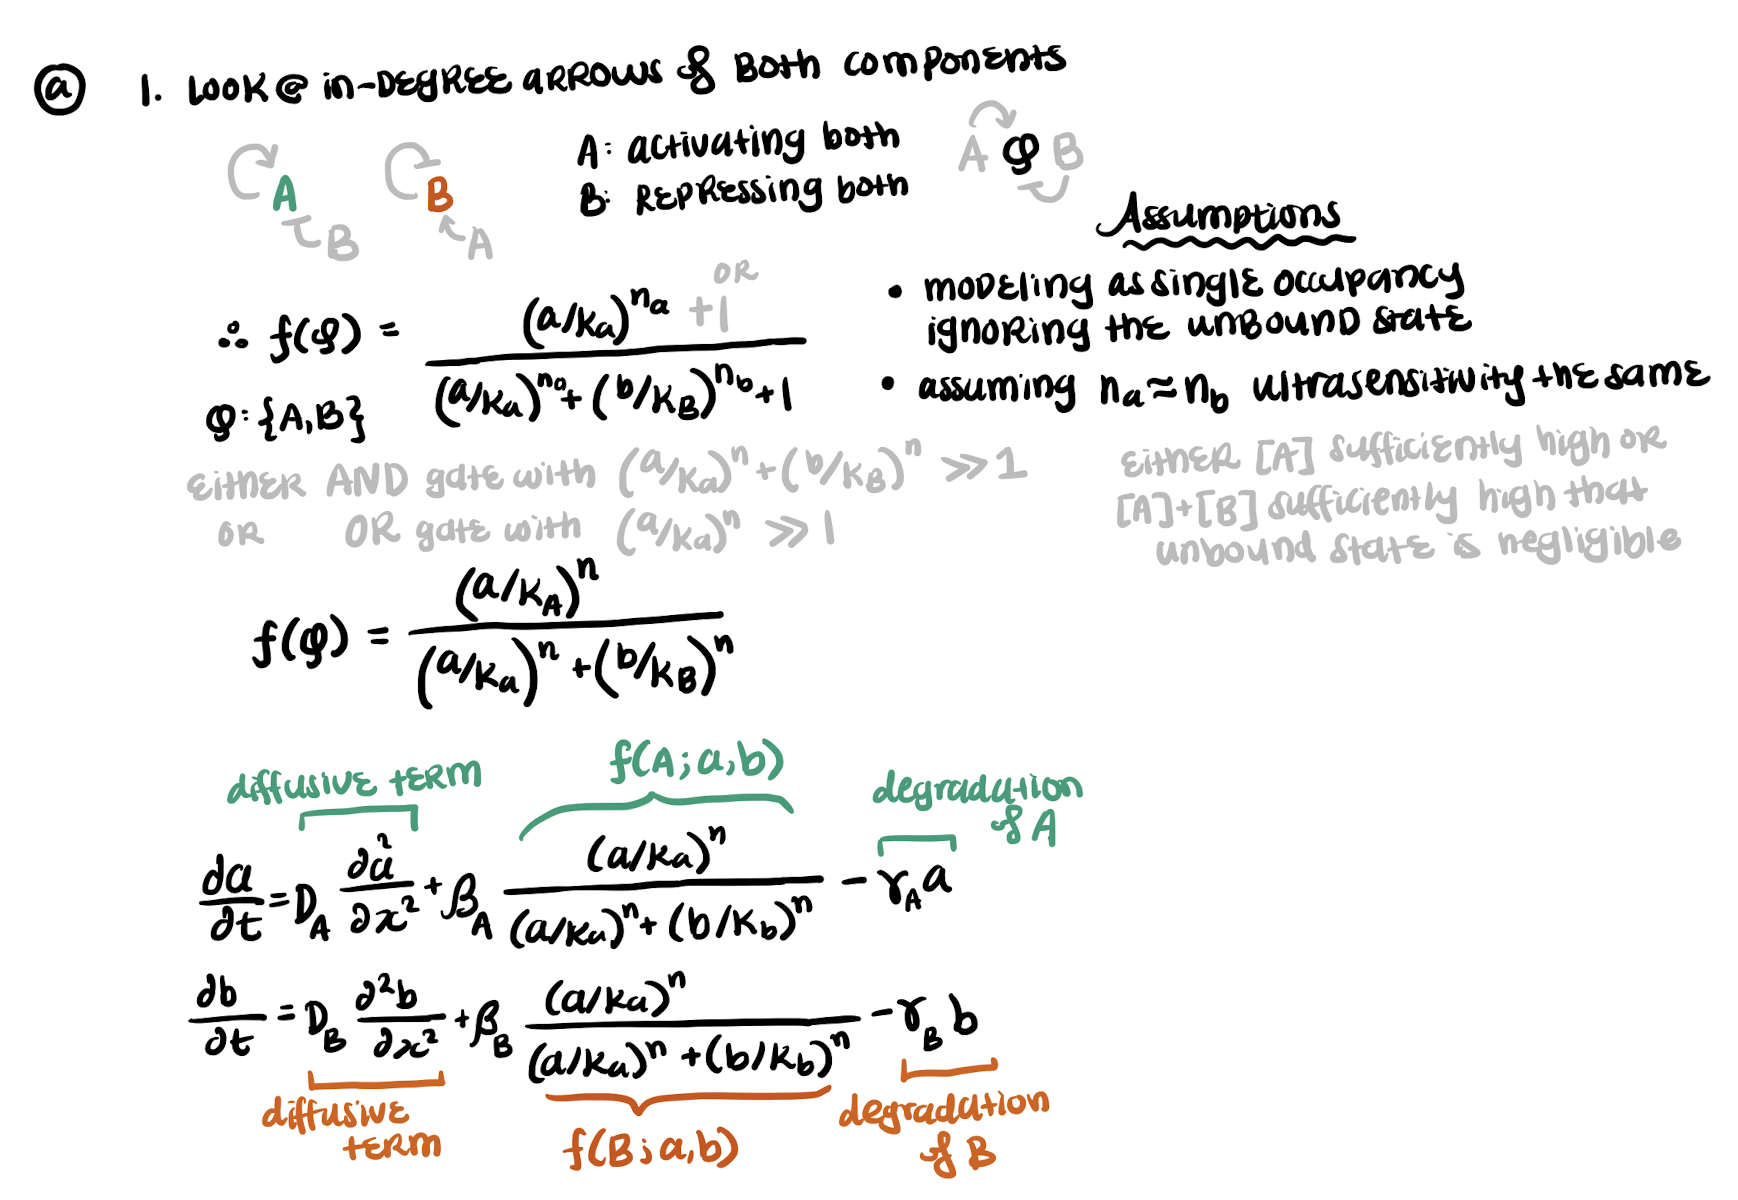 ⓐ 1. LOOK @ in-DEGREE ARROWS of BOTH COMPONENTS
A B
B A
A: activating both
B: REPRESSing both
A φ B
Assumptions
• MODELing AS SINGLE OCCUPANCY
ignoRing tHE UNBOUND State
• assuming nₐ≈n_b ultrasensitivity the same
∴ f(φ) = ((a/Kₐ)^nₐ +1) / ((a/Kₐ)^nₐ + (b/K_B)^n_b + 1)
OR
φ: {A,B}
EitHER AND gate with (a/Kₐ)^n + (b/K_B)^n ≫ 1
OR OR gate with (a/Kₐ)^n ≫ 1
EitHER [A] sufficiently high OR
[A]+[B] sufficiently high that
unbound state is negligible
f(φ) = (a/K_A)^n / ((a/Kₐ)^n + (b/K_B)^n)
diffusive tERM
f(A; a,b)
degradation
of A
∂a/∂t = D_A ∂a²/∂x² + β_A (a/Kₐ)^n / ((a/Kₐ)^n + (b/K_b)^n) − γ_A a
∂b/∂t = D_B ∂²b/∂x² + β_B (a/Kₐ)^n / ((a/Kₐ)^n + (b/K_b)^n) − γ_B b
diffusive
tERM
f(B; a,b)
degradation
of B